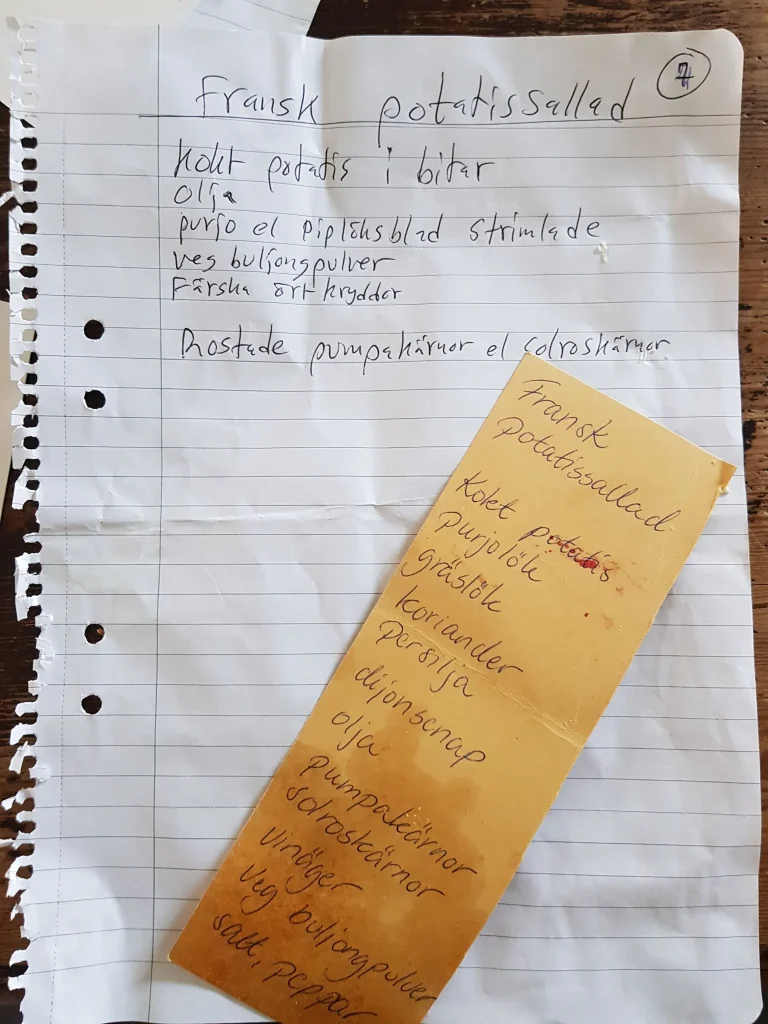 Fransk potatissallad
Kokt potatis i bitar
olja
purjo el piplöksblad strimlade
veg buljongpulver
Färska örtkryddor
Rostade pumpakärnor el solroskärnor
Fransk
Potatissallad
Kokt potatis
purjolök
gräslök
koriander
persilja
dijonsenap
olja
pumpakärnor
solroskärnor
vinäger
veg buljongpulver
salt, peppar